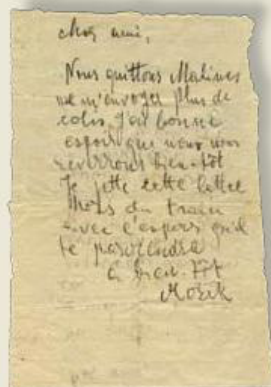 cher ami,
Nous quittons Malines
ne m'envoyer plus de
colis, j'ai bonne
espoir que nous nous
reverrons bien-tôt
Je jette cette lettre
hors du train
avec l'espoir qu'il
te parviendra
à bien-tôt